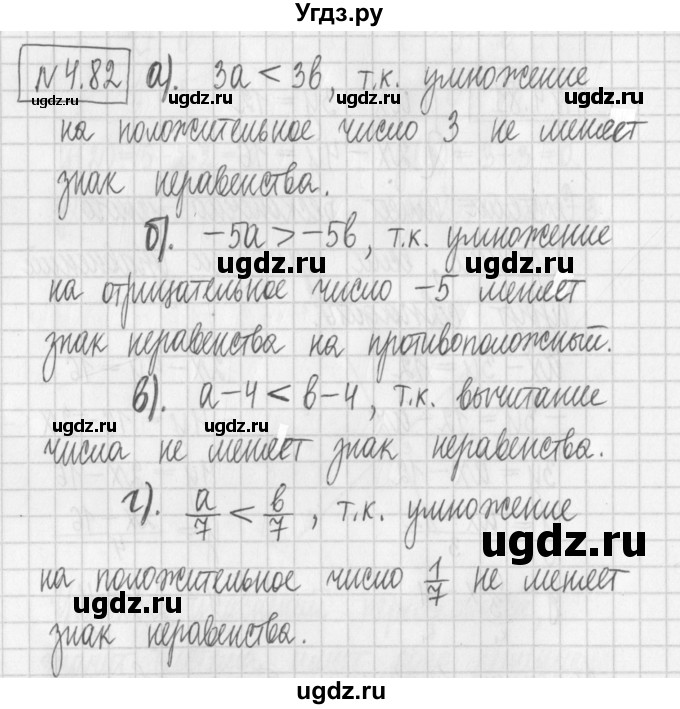 Угдз.ру
№4.82 а). 3a < 3b, т.к. умножение
на положительное число 3 не меняет
знак неравенства.
б). -5a > -5b, т.к. умножение
на отрицательное число -5 меняет
знак неравенства на противоположный.
в). a-4 < b-4, т.к. вычитание
числа не меняет знак неравенства.
г). a/7 < b/7, т.к. умножение
на положительное число 1/7 не меняет
знак неравенства.
ugdz.ru
ugdz.ru
ugdz.ru
ugdz.ru
ugdz.ru
ugdz.ru
ugdz.ru
ugdz.ru
ugdz.ru
ugdz.ru
ugdz.ru
ugdz.ru
ugdz.ru